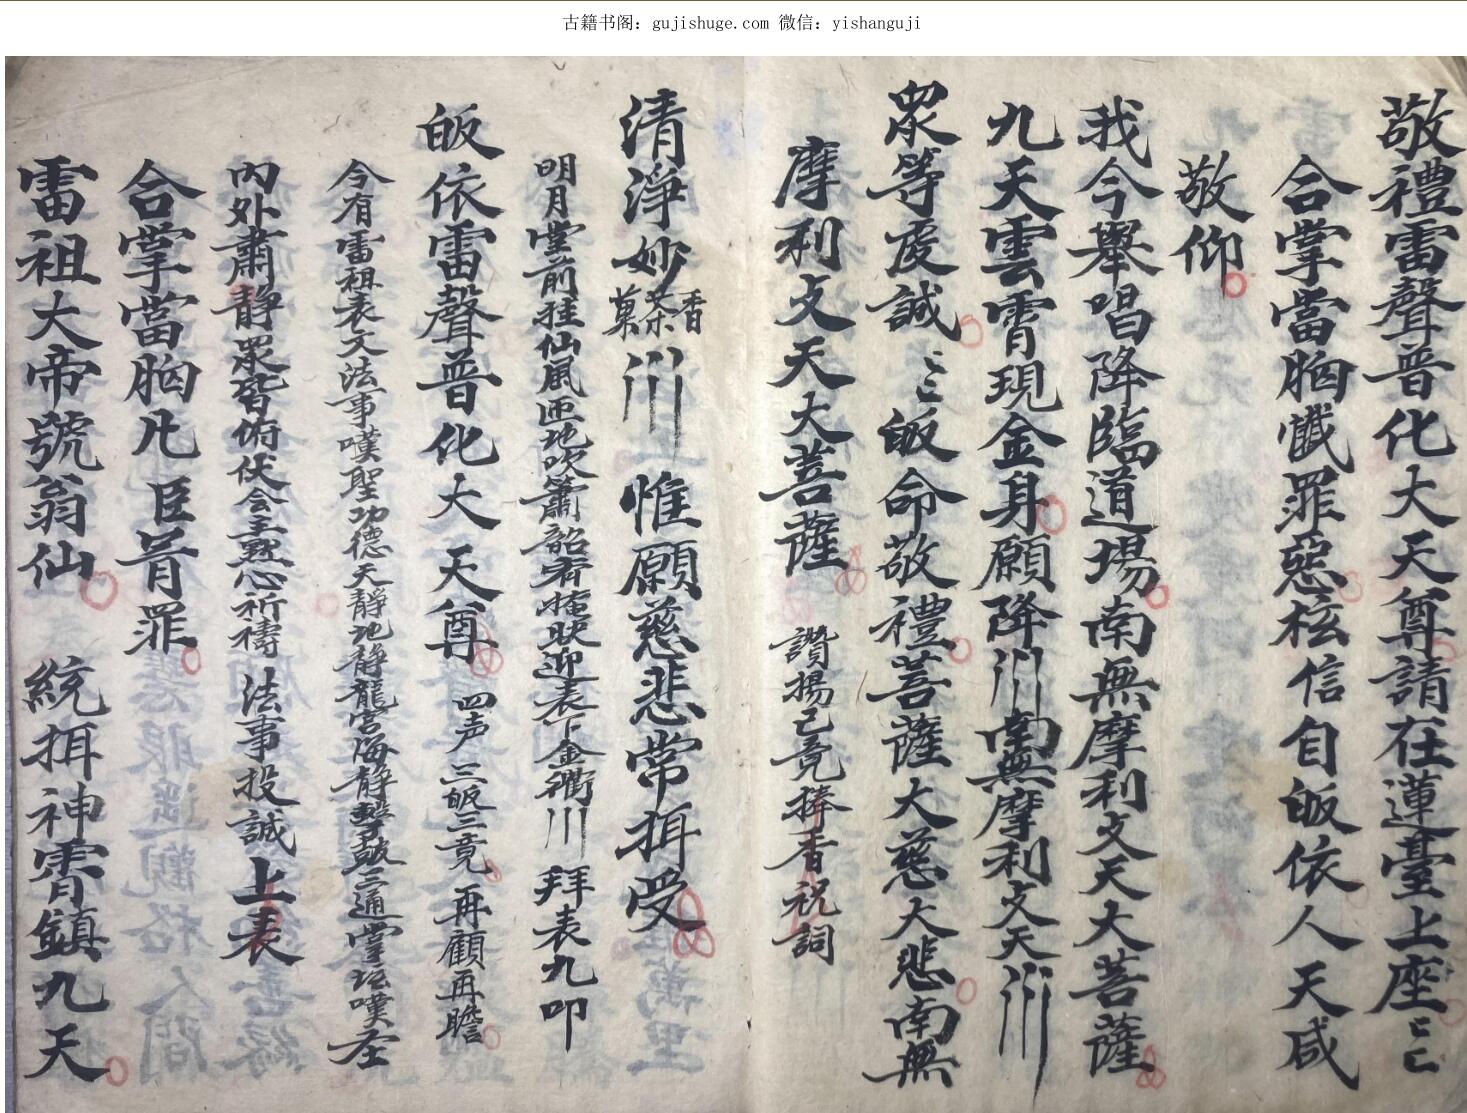 古籍书阁：gujishuge.com 微信：yishanguji
敬禮雷聲普化大天尊請在蓮臺上座〻〻
合掌當胸懺罪惡核信自皈依人天咸
敬仰
我今舉唱降臨道場南無摩利攴天大菩薩
九天雲霄現金身願降川南無摩利攴天川
眾等虔誠〻〻皈命敬禮菩薩大慈大悲南無
摩利攴天大菩薩 讚揚已竟捧香祝詞
清淨妙香茶菓川惟願慈悲常拥受
明月堂前挂仙風匝地吹簫韶宥擁狀迎表下金衢川 拜表九叩
皈依雷聲普化大天尊 四声 三皈三竟 再顧再瞻
今有雷祖表文法事嘆聖功德天靜地静龍宮海静擊鼓三通掌坛嘆圣
內外肅靜眾皆俯伏会主默心祈禱 法事投誠上表
合掌當胸凡臣首罪
雷祖大帝號翁仙 統拥神霄鎮九天